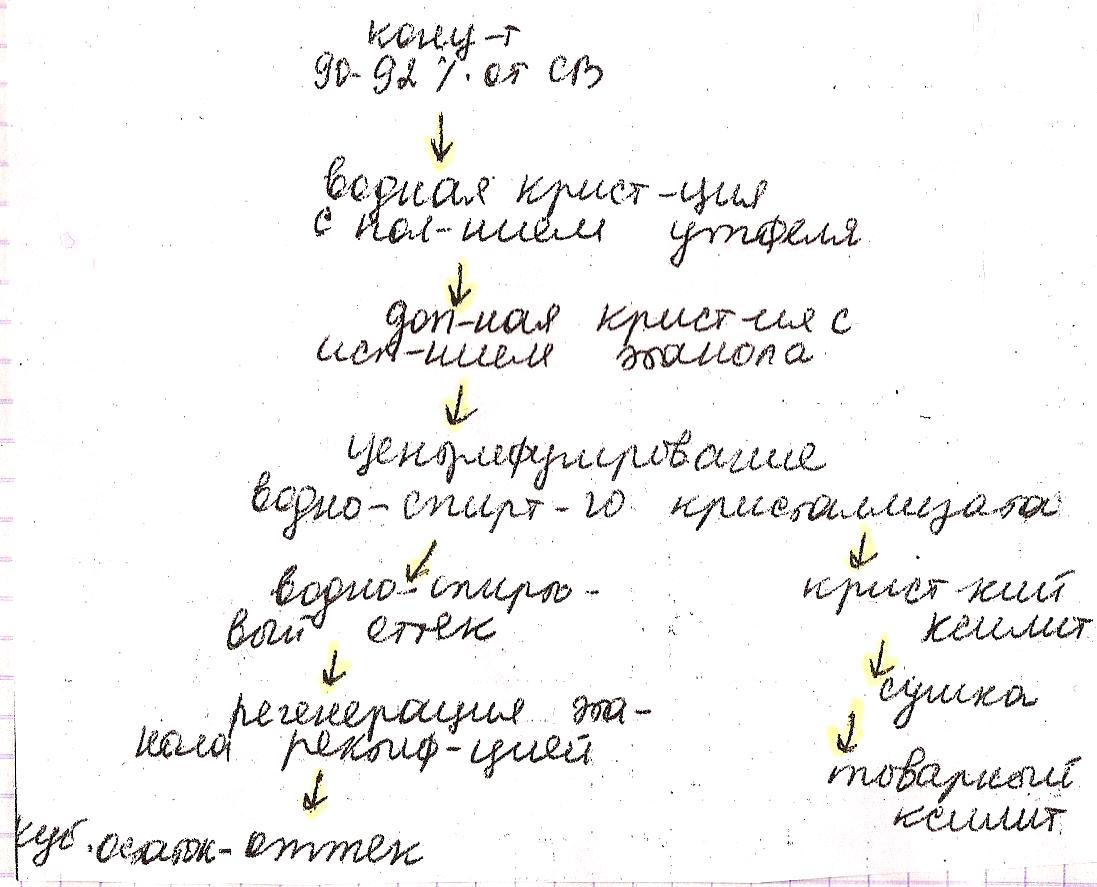 конц-т
90-92 % от СВ
водная крист-ция
с пол-нием утфеля
доп-ная крист-ия с
исп-нием этанола
центрифугирование
водно-спирт-го кристаллизата
водно-спирто-
вый оттек
крист-кий
ксилит
сушка
регенерация эта-
нола ректиф-цией
товарный
ксилит
куб. остаток-оттек